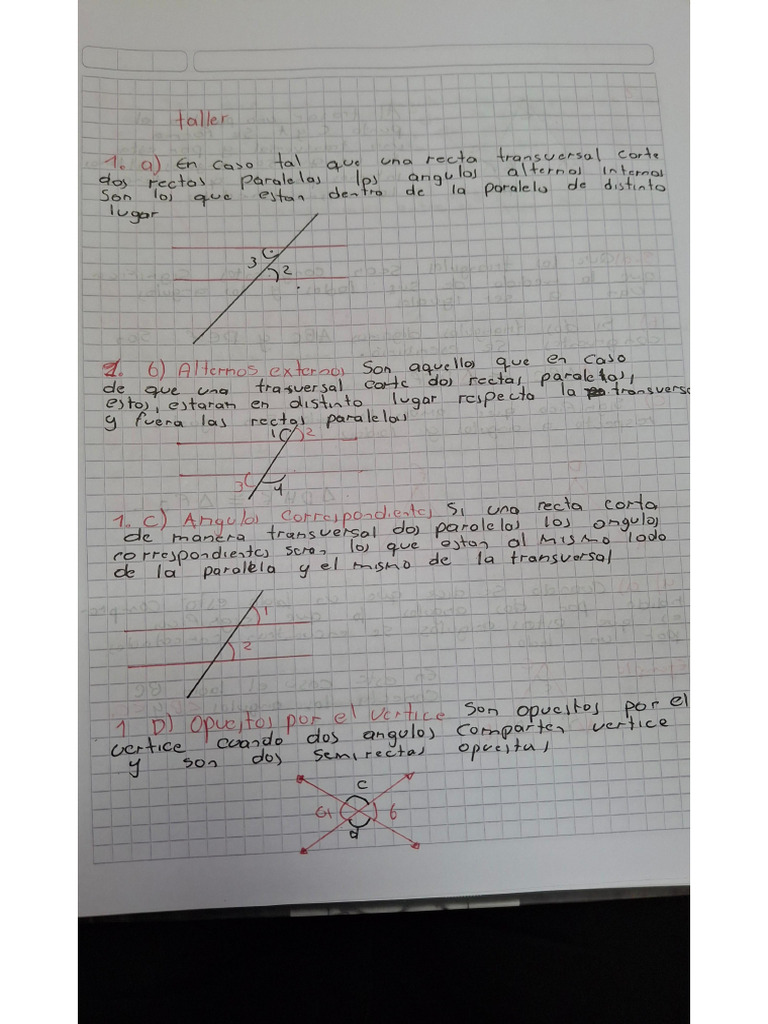 taller
1. a) En caso tal que una recta transversal corte
dos rectas paralelas los angulos alternos internos
son los que estan dentro de la paralelo de distinto
lugar
3
2
1. b) Alternos externos son aquellos que en caso
de que una trasversal corte dos rectas paralelas,
estos, estaran en distinto lugar respecto la transversa
y fuera las rectas paralelas
1 2
3 4
1. C) Angulos correspondientes Si una recta corta
de manera transversal dos paralelos los angulos
correspondientes seran los que estan al mismo lado
de la paralela y el mismo de la transversal
1
2
1 D) Opuestos por el vertice son opuestos por el
vertice cuando dos angulos comparten vertice
y son dos semirectas opuestas
c
a b
d